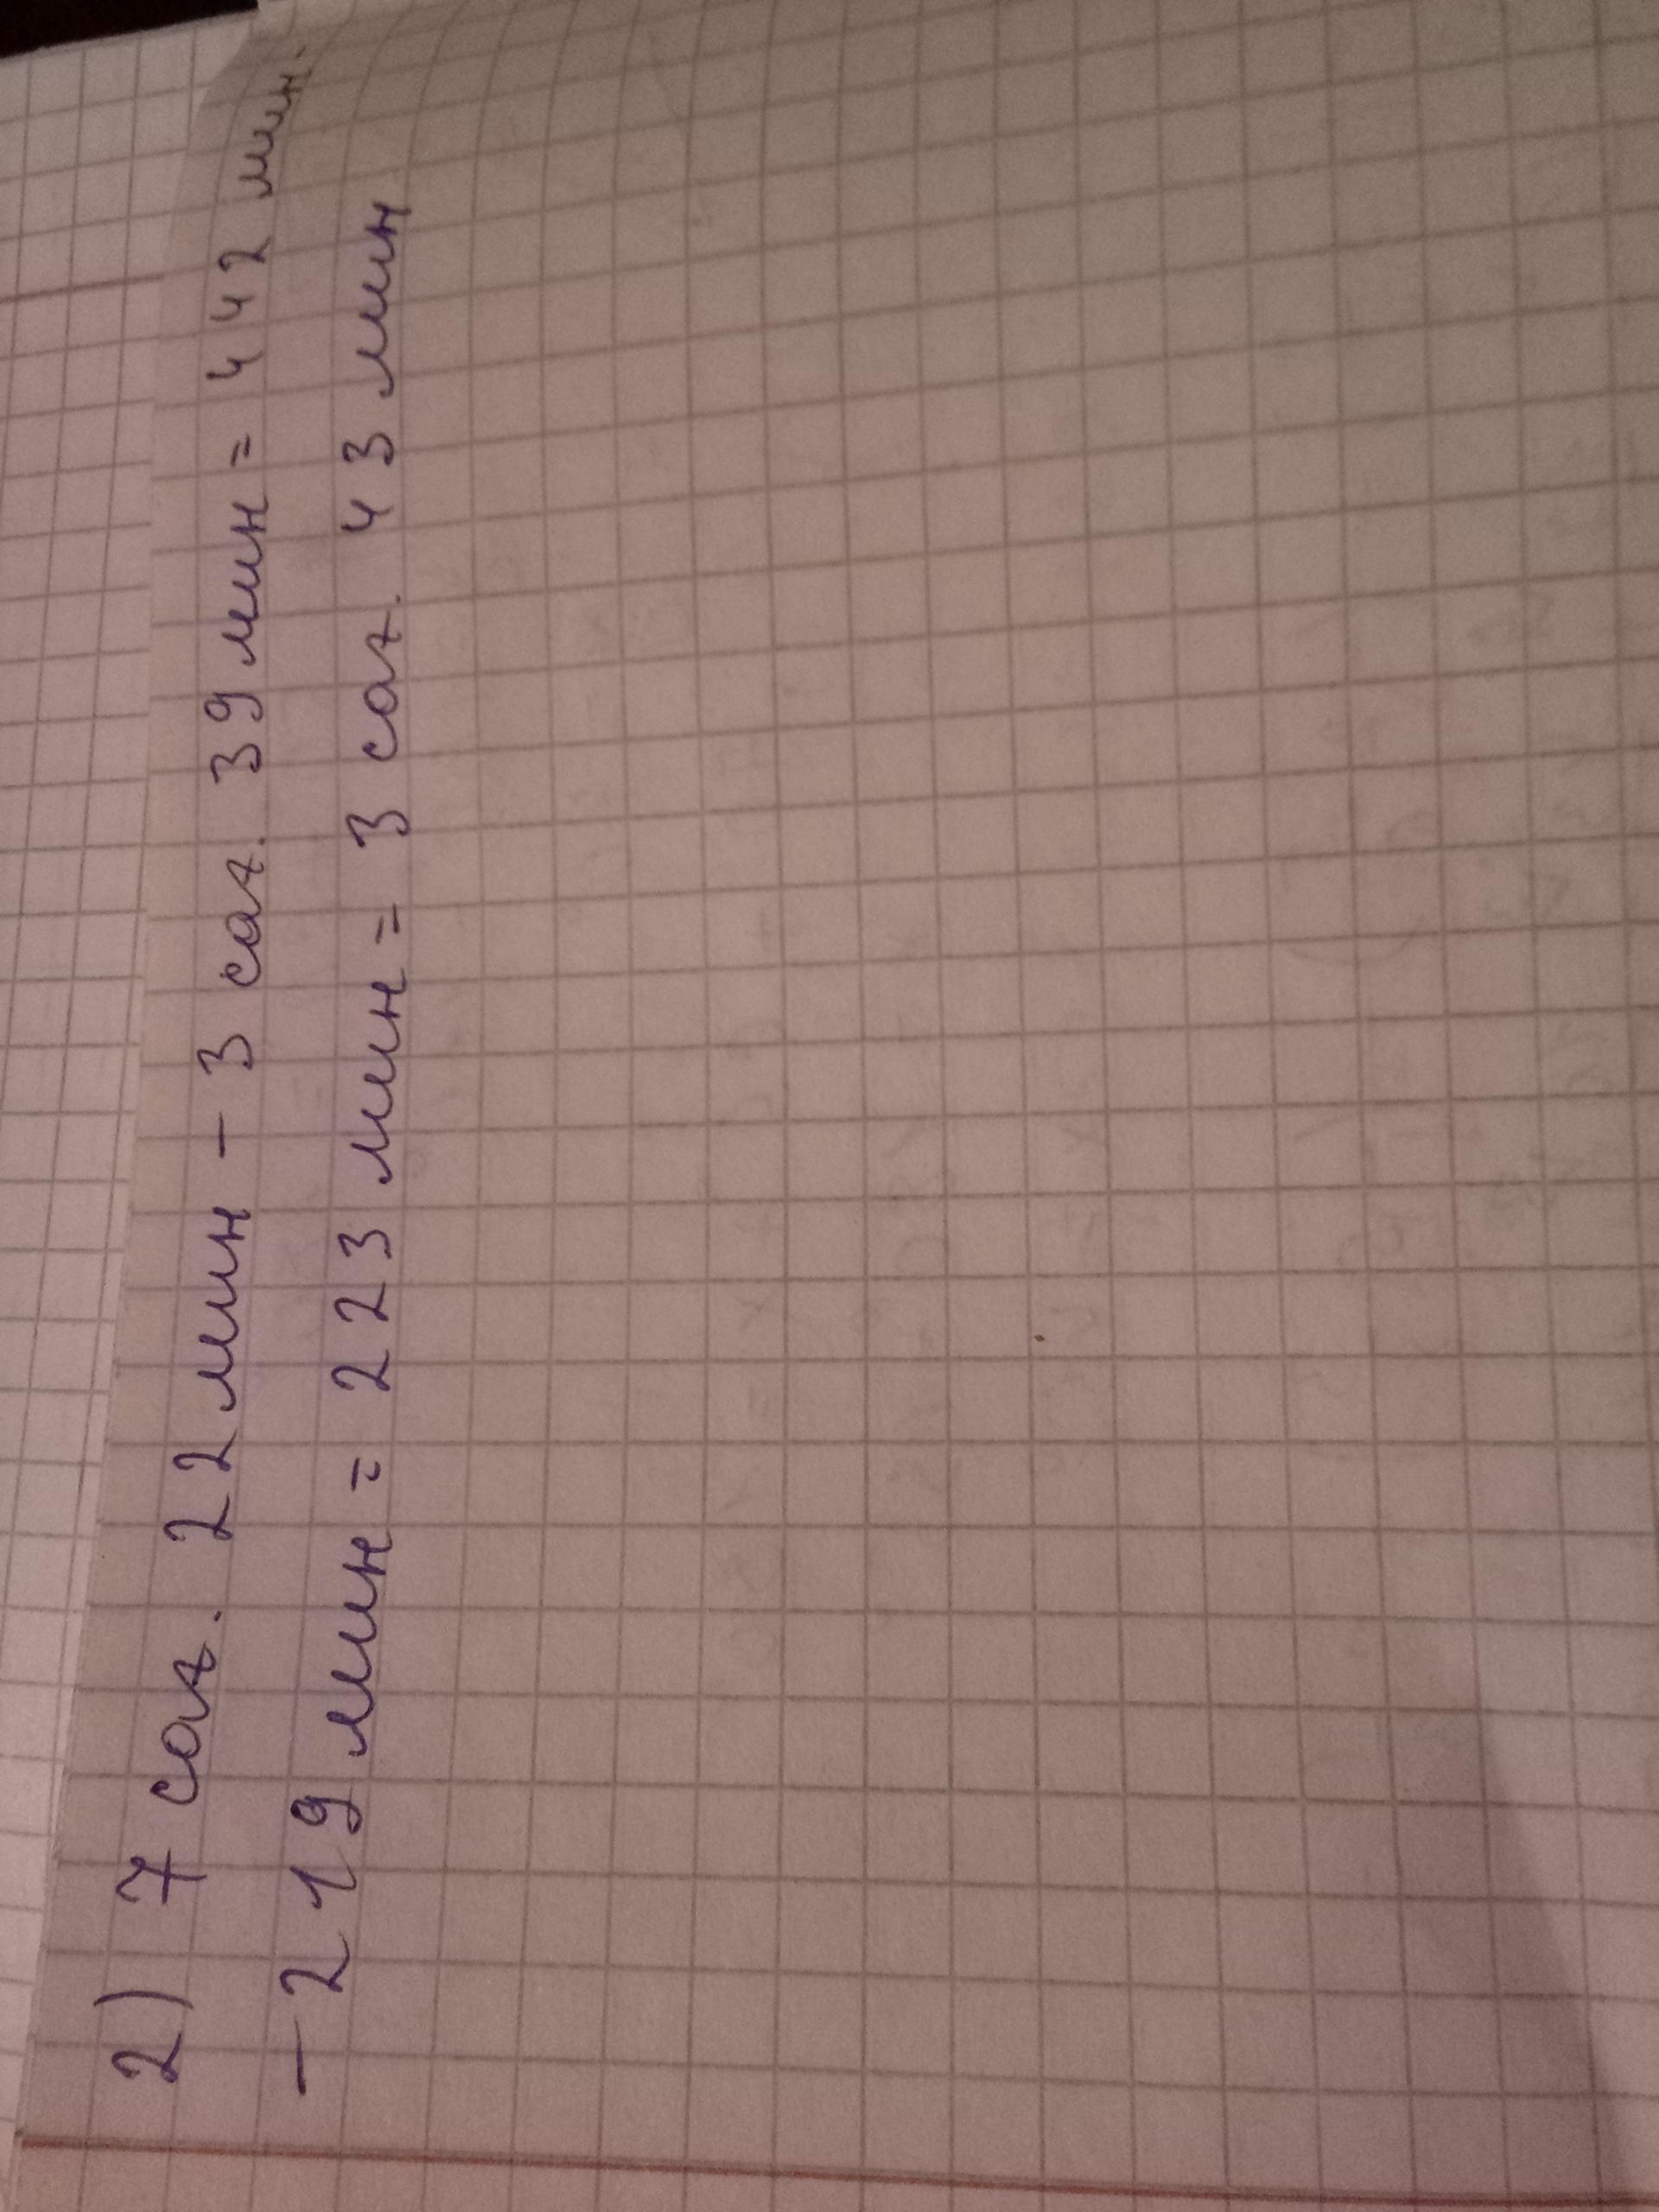 2) 7 сағ. 22 мин - 3 сағ. 39 мин = 442 мин -
- 219 мин = 223 мин = 3 сағ. 43 мин